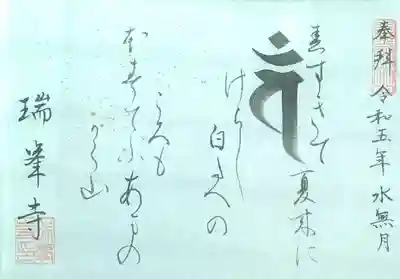 奉拜 令和五年 水無月
春すきて夏来に
けらし白たへの
ころも
ほすてふあまの
かく山
瑞峯寺